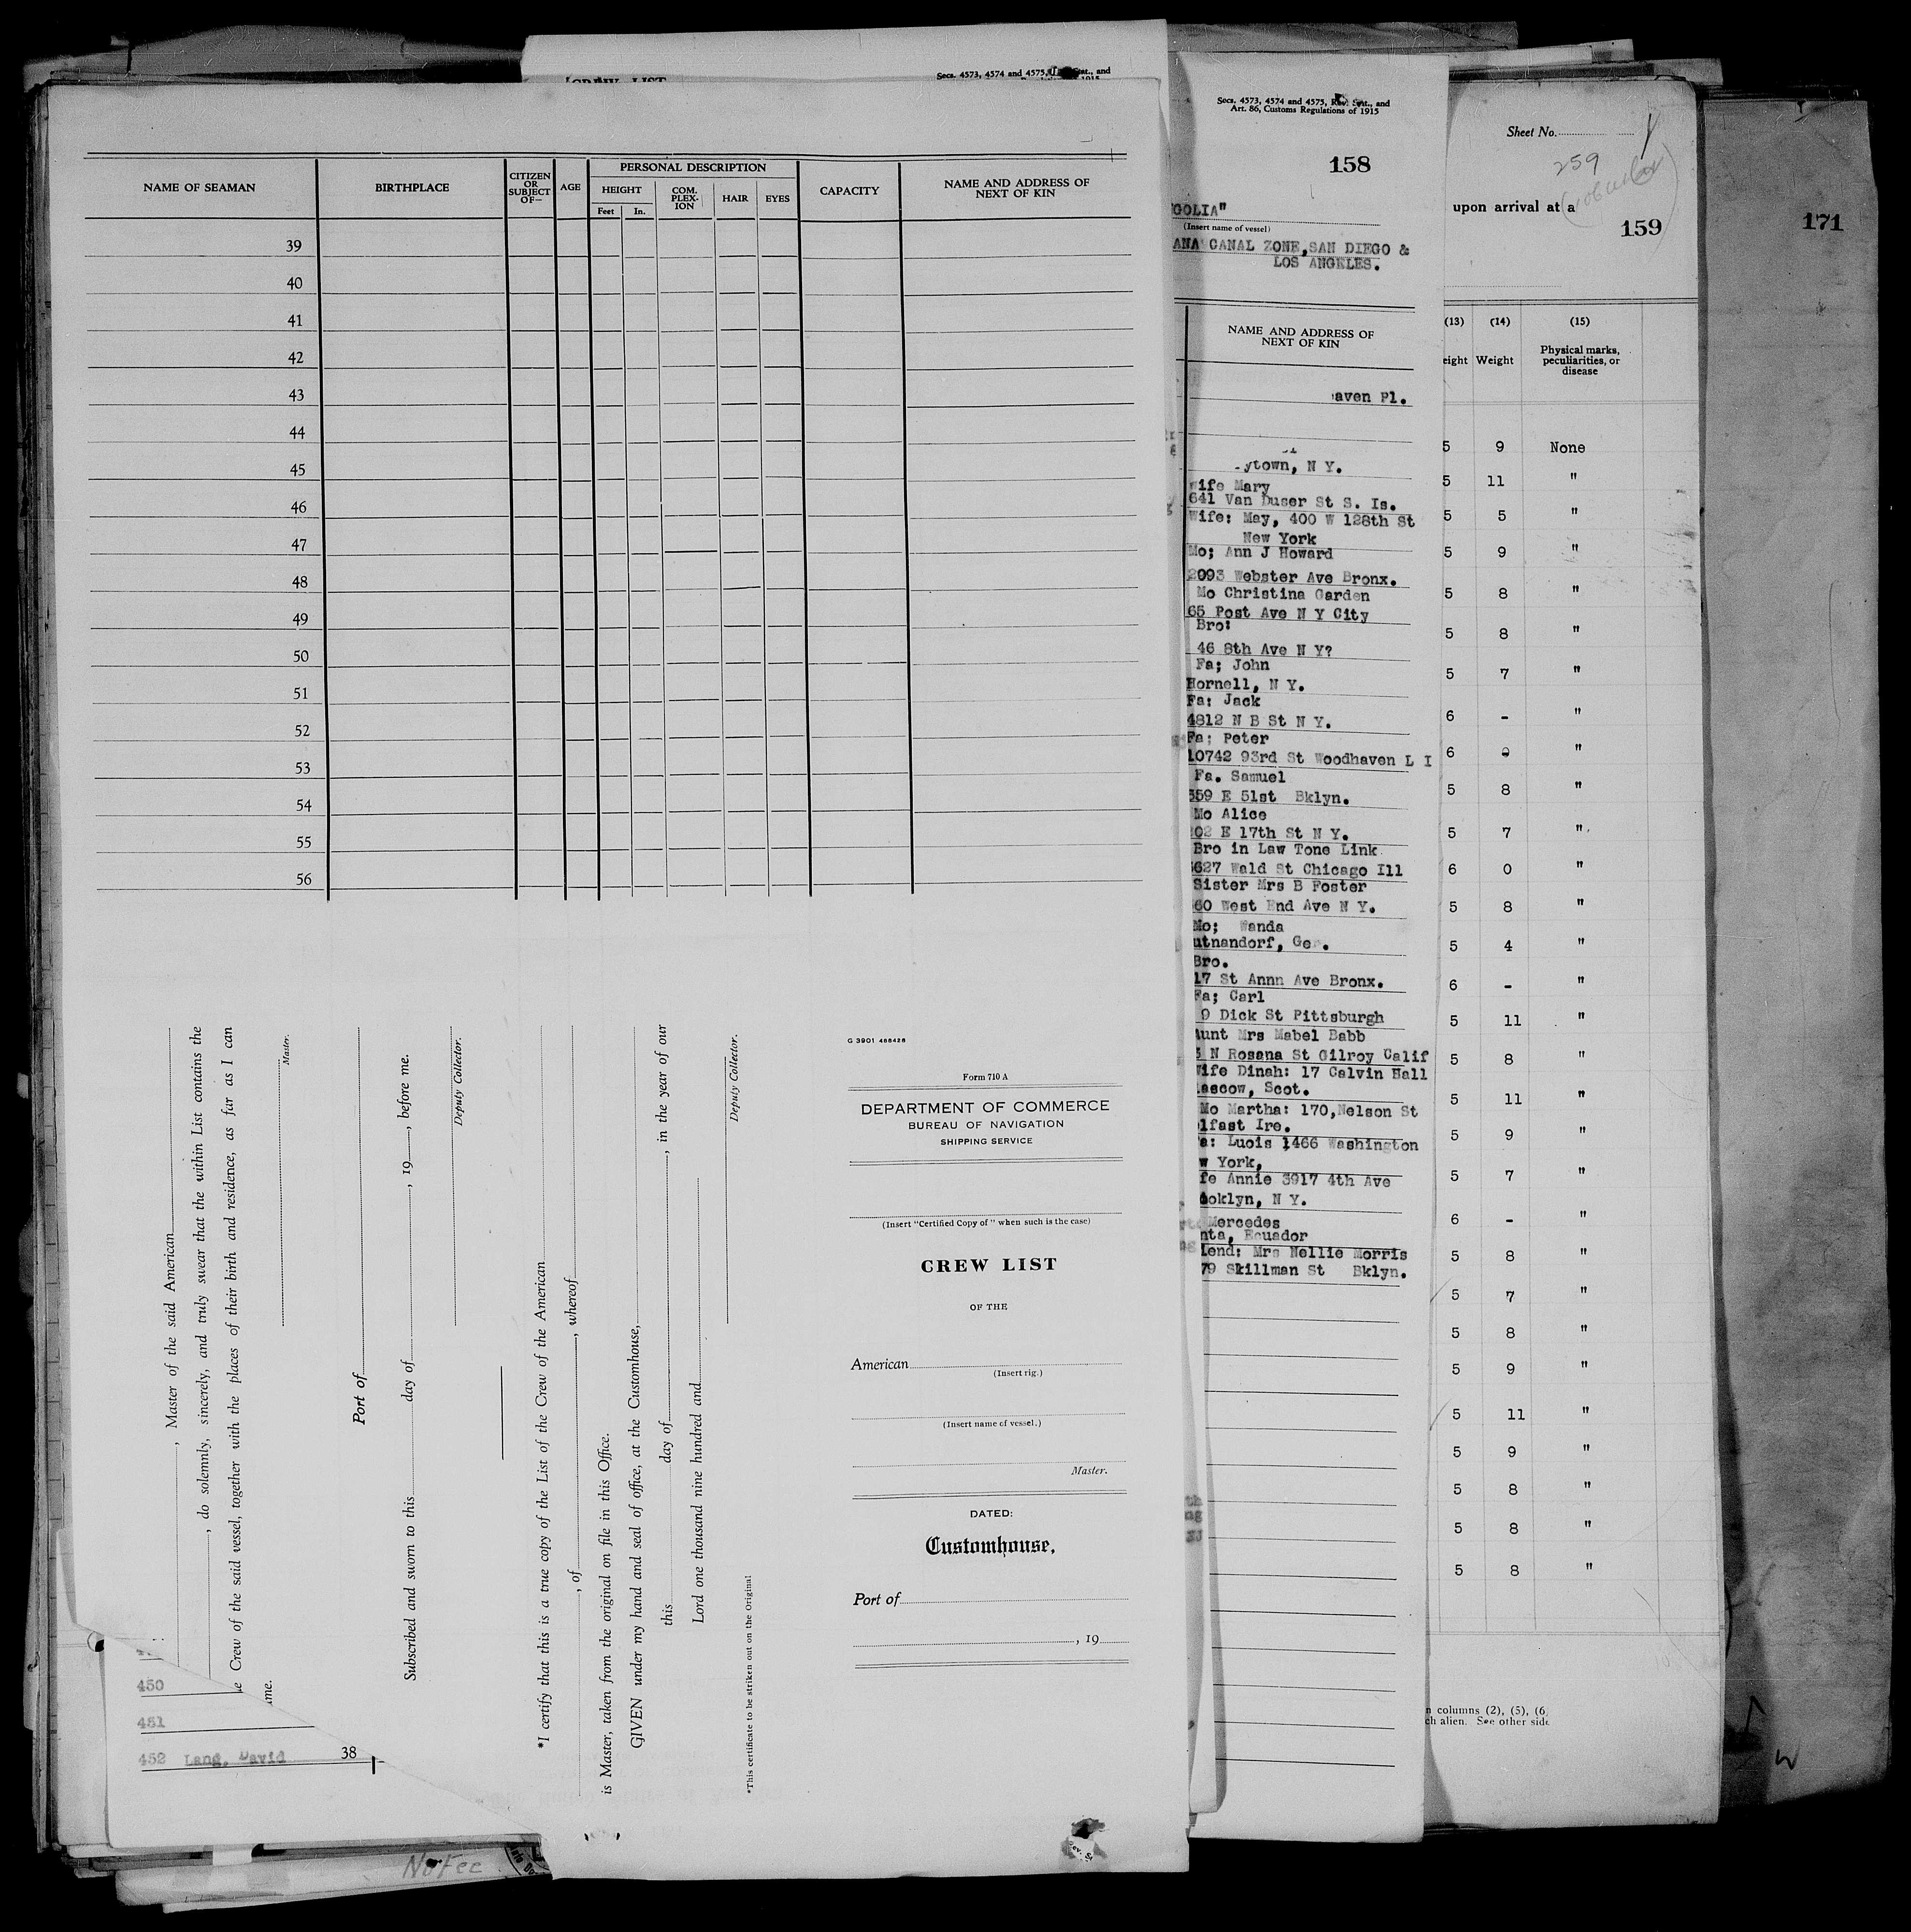 Secs. 4573, 4574 and 4575, Stat., and
NAME OF SEAMAN
BIRTHPLACE
CITIZEN OR SUBJECT OF—
AGE
PERSONAL DESCRIPTION
HEIGHT
Feet
In.
COM. PLEX- ION
HAIR
EYES
CAPACITY
NAME AND ADDRESS OF NEXT OF KIN
39
40
41
42
43
44
45
46
47
48
49
50
51
52
53
54
55
56
, Master of the said American
, do solemnly, sincerely, and truly swear that the within List contains the
Crew of the said vessel, together with the places of their birth and residence, as far as I can
Master.
Port of
Subscribed and sworn to this day of , 19 , before me.
Deputy Collector.
*I certify that this is a true copy of the List of the Crew of the American
, of , whereof
is Master, taken from the original on file in this Office.
GIVEN under my hand and seal of office, at the Customhouse,
this day of , in the year of our
Lord one thousand nine hundred and
Deputy Collector.
*This certificate to be striken out on the Original
G 3901 486428
Form 710 A
DEPARTMENT OF COMMERCE
BUREAU OF NAVIGATION
SHIPPING SERVICE
(Insert "Certified Copy of" when such is the case)
CREW LIST
OF THE
American
(Insert rig.)
(Insert name of vessel.)
Master.
DATED:
Customhouse,
Port of
, 19
450
451
452 Lang, David 38
Secs. 4573, 4574 and 4575, Rev. Stat., and
Art. 86, Customs Regulations of 1915
158
GOLIA"
(Insert name of vessel)
ANA CANAL ZONE, SAN DIEGO &
LOS ANGELES.
NAME AND ADDRESS OF
NEXT OF KIN
aven Pl.
ytown, N Y.
Wife Mary
641 Van Duser St S. Is.
Wife: May, 400 W 128th St
New York
Mo; Ann J Howard
2093 Webster Ave Bronx.
Mo Christina Garden
65 Post Ave N Y City
Bro:
46 8th Ave N Y?
Fa; John
Hornell, N Y.
Fa: Jack
4812 N B St N Y.
Fa; Peter
10742 93rd St Woodhaven L I
Fa. Samuel
559 E 51st Bklyn.
Mo Alice
02 E 17th St N Y.
Bro in Law Tone Link
627 Wald St Chicago Ill
Sister Mrs B Foster
60 West End Ave N Y.
Mo; Wanda
utnandorf, Ge .
Bro.
17 St Annn Ave Bronx.
Fa; Carl
9 Dick St Pittsburgh
Aunt Mrs Mabel Babb
N Rosana St Gilroy Calif
Wife Dinah: 17 Calvin Hall
lascow, Scot.
Mo Martha: 170, Nelson St
lfast Ire.
a: Luois 1466 Washington
w York,
fe Annie 3917 4th Ave
ooklyn, N Y.
Mercedes
nta, Ecuador
iend: Mrs Nellie Morris
79 Skillman St Bklyn.
Sheet No.
259
upon arrival at a
159
(13) (14) (15)
eight Weight Physical marks, peculiarities, or disease
5 9 None
5 11 "
5 5 "
5 9 "
5 8 "
5 8 "
5 7 "
6 - "
6 0 "
5 8 "
5 7 "
6 0 "
5 8 "
5 4 "
6 - "
5 11 "
5 8 "
5 11 "
5 9 "
5 7 "
6 - "
5 8 "
5 7 "
5 8 "
5 9 "
5 11 "
5 9 "
5 8 "
5 8 "
5 8 "
n columns (2), (5), (6
ch alien. See other side
171